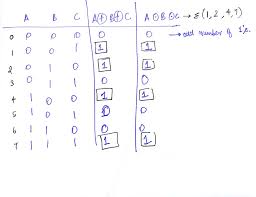 A B C A ⊕ B ⊕ C A ⊙ B ⊙ C → Σ(1, 2, 4, 7)
0 0 0 0 0 0 → odd number of 1's.
1 0 0 1 1 1
2 0 1 0 1 1
3 0 1 1 0 0
4 1 0 0 1 1
5 1 0 1 0 0
6 1 1 0 0 0
7 1 1 1 1 1